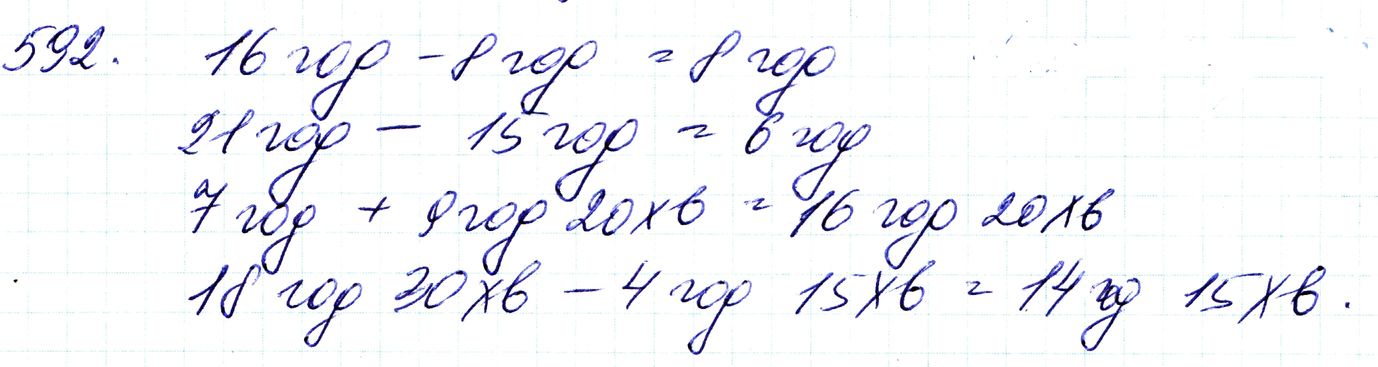 592. 16 год - 8 год = 8 год
21 год - 15 год = 6 год
7 год + 9 год 20 хв = 16 год 20 хв
18 год 30 хв - 4 год 15 хв = 14 год 15 хв.